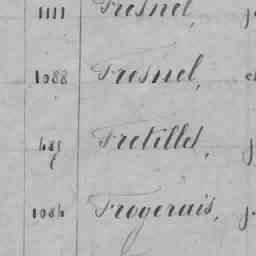 1111 Fresnel,
1088 Fresnel,
489 Fretillet,
1084 Frogerais,